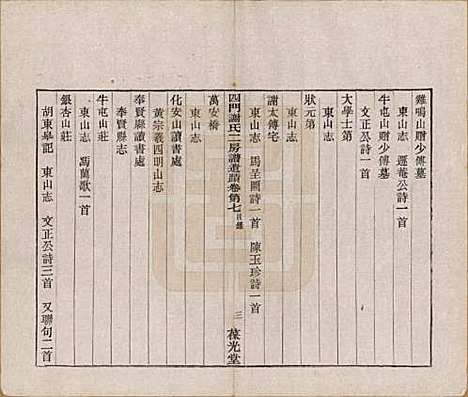 雞鳴山贈少傅墓
東山志 遯菴公詩一首
牛屯山贈少傅墓
文正公一首
大學士第
東山志
狀元第
謝太傅宅
東山志 馬呈圖詩一首 陳玉珍詩一首
四門謝氏二房譜遺蹟卷第七目錄 三 葆光堂
萬安橋
東山志
化安山讀書處
黃宗羲四明山志
奉賢縣讀書處
奉賢縣志
牛屯山莊
東山志 馮蘭歌一首
銀杏山莊
胡東皋記 東山志 文正公詩三首 又聯句二首